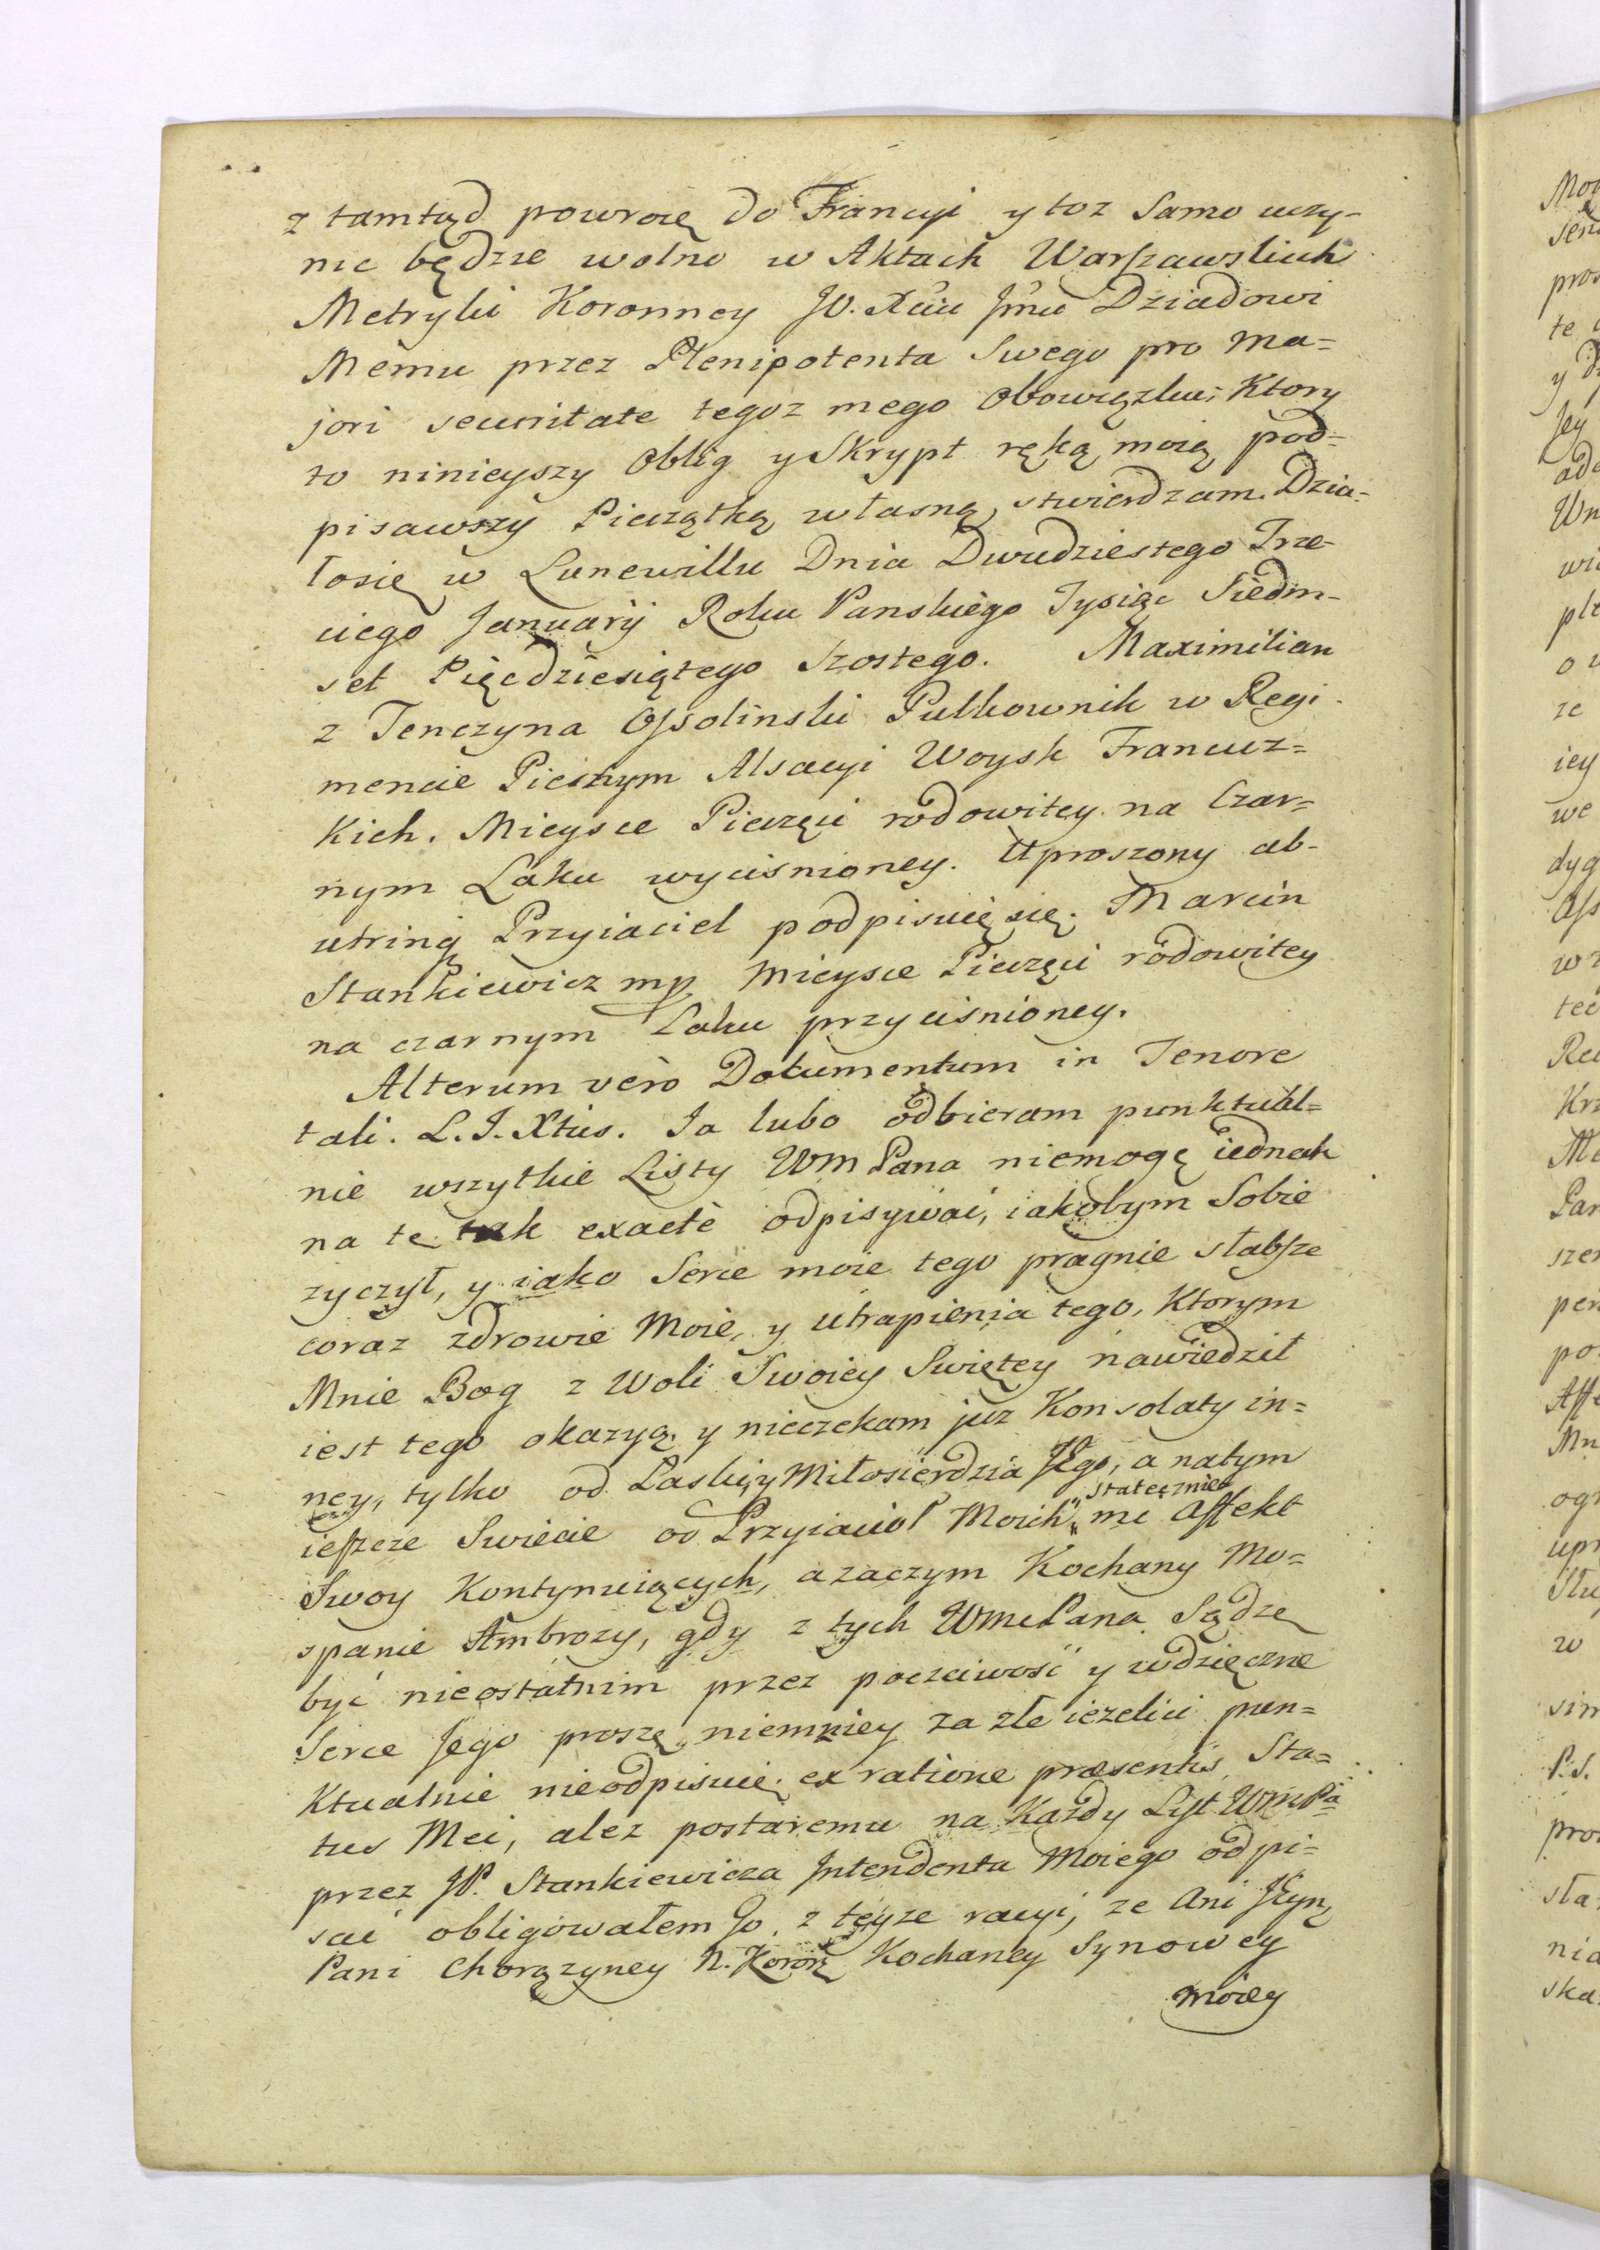 z tamtąd powrocę do Francyi y toz Samo uczy-
nic będzie wolno w Aktach Warszawskich
Metryki Koronney JO. Xciu Jmci Dziadowi
Memu przez Plenipotenta Swego pro ma=
jori securitate tegoz mego Obowiązku; Ktory
to ninieyszy Oblig y Skrypt ręką moią pod=
pisawszy Pieczątką własną stwierdzam. Dzia-
łosię w Lunewillu Dnia Dwudziestego Trze-
ciego Januarij Roku Panskiego Tysiąc Siedm-
set Pięcdziesiątego Szostego. Maximilian
z Tenczyna Ossolinski Pułkownik w Regi-
mencie Pieszym Alsacyi Woysk Francuz=
kich. Mieysce Pieczęci rodowitey na Czar=
nym Laku wycisnioney. Uproszony ab-
utrinq Przyiaciel podpisuię się. Marcin
Stankiewicz mp Mieysce Pieczęci rodowitey
na czarnym Laku przycisnioney.
Alterum vero Documentum in Tenore
tali. L. J. Xtus. Ja lubo odbieram punktual=
nie wszytkie Listy WM Pana niemogę iednak
na te tak exacte odpisywać, iakobym Sobie
zyczył, y iako Serce moie tego pragnie słabsze
coraz zdrowie Moie, y utrapienia tego, Ktorym
Mnie Bog z Woli Swoiey Swiętey nawiedził
iest tego okazyą. y nieczekam juz Konsolaty in=
ney, tylko od Łaski y Miłosierdzia Jego, a natym
ieszcze Swiecie od Przyiacioł Moich statecznie mi affekt
Swoy Kontynuiących, a zaczym Kochany Mo=
spanie Ambrozy, gdy z tych WMcPana Sądzę
być nieostatnim przez poczciwość y wdzięczne
Serce Jego proszę niemniey za złe iezelici pun=
ktualnie nieodpisuię. ex ratione præsentis Sta=
tus Mei, alez postaremu na Kazdy List WMPa
przez JP. Stankiewicza Intendenta Moiego odpi=
sać obligowałem Go. z teyze racyi, ze Ani JEyn
Pani Chorązyney N. Koron Kochaney Synowey
moiey